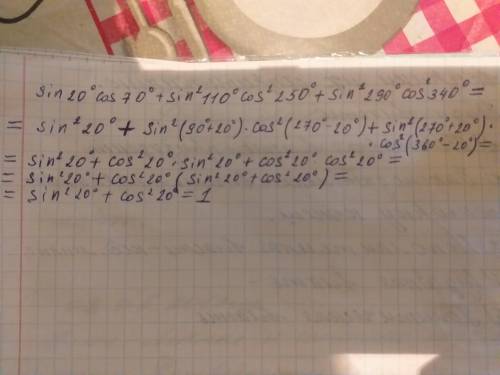 sin20°cos70° + sin²110°cos²250° + sin²290°cos²340° =
= sin²20° + sin²(90°+20°)·cos²(270°-20°) + sin²(270°+20°)·
·cos²(360°-20°) =
= sin²20° + cos²20°·sin²20° + cos²20° cos²20° =
= sin²20° + cos²20° (sin²20° + cos²20°) =
= sin²20° + cos²20° = 1